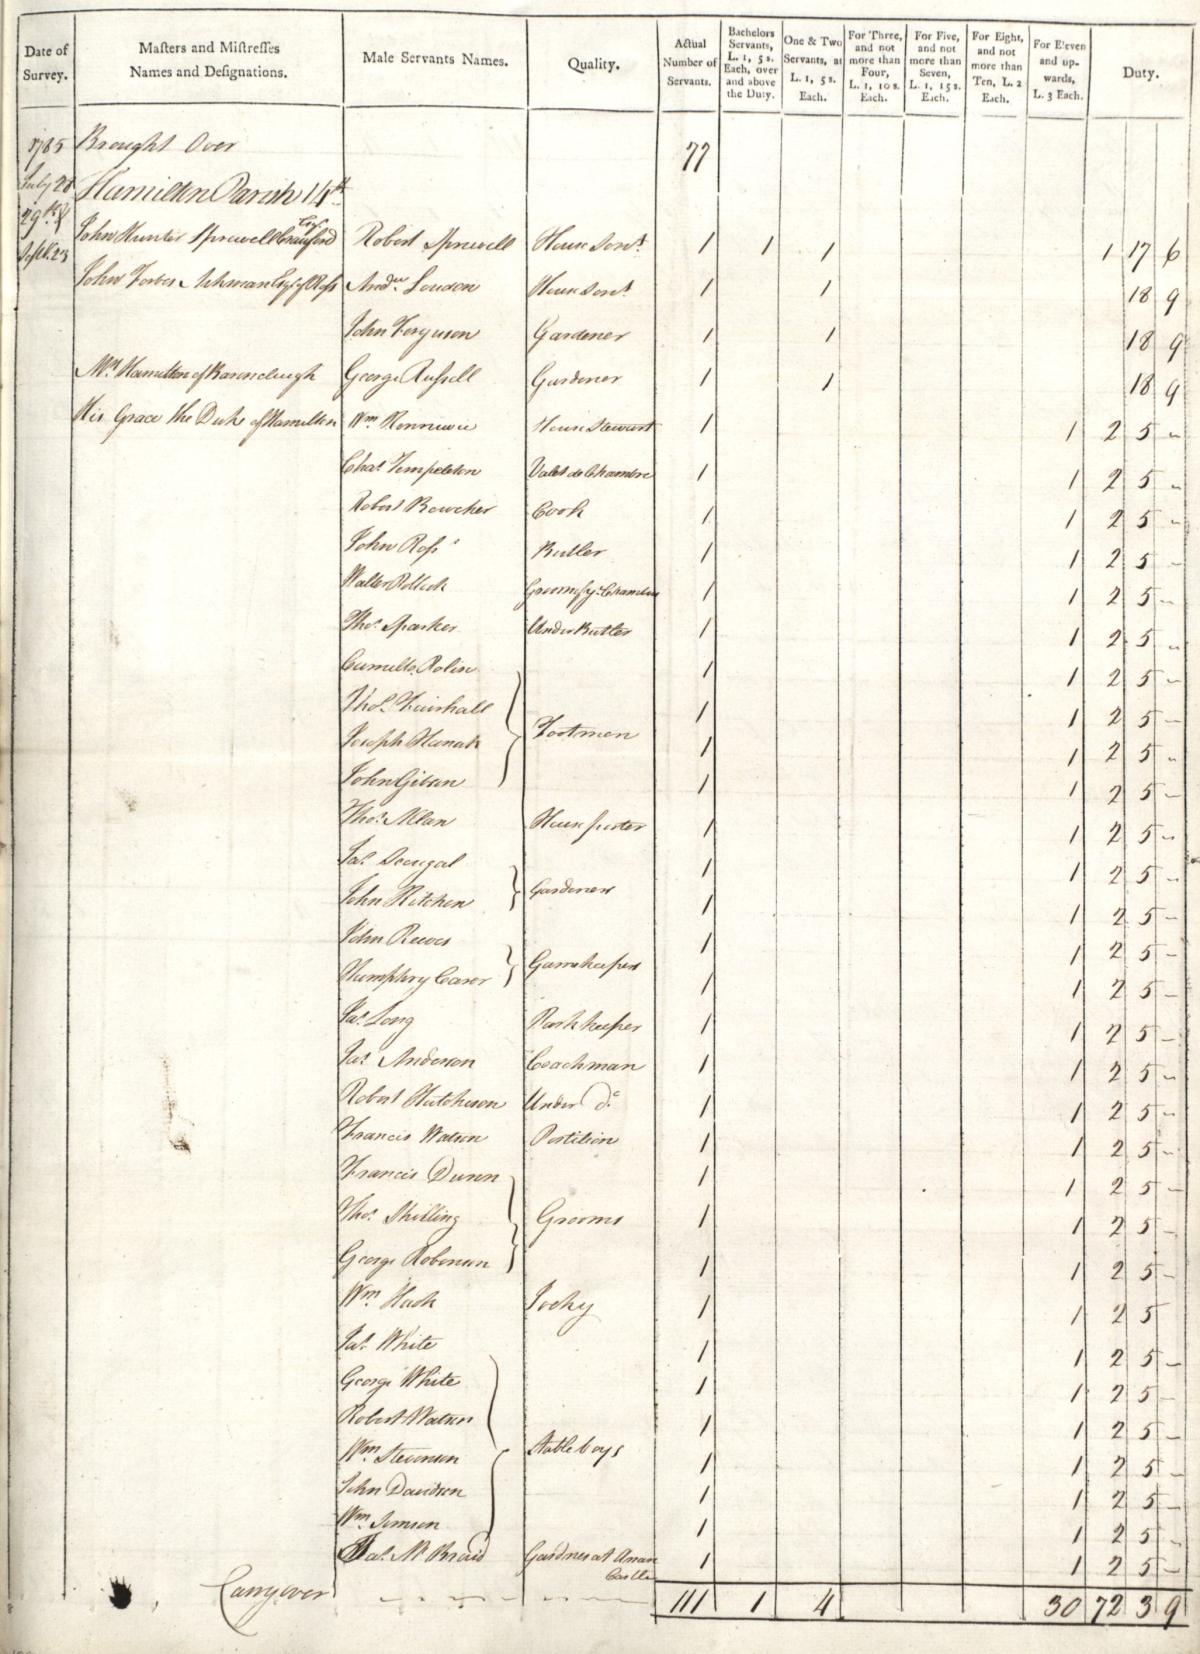 Date of Survey. | Masters and Mistresses Names and Designations. | Male Servants Names. | Quality. | Actual Number of Servants. | Bachelors Servants, L. 1, 5 s. Each, over and above the Duty. | One & Two Servants, at L. 1, 5 s. Each. | For Three, and not more than Four, L. 1, 10 s. Each. | For Five, and not more than Seven, L. 1, 15 s. Each. | For Eight, and not more than Ten, L. 2 Each. | For Eleven and upwards, L. 3 Each. | Duty.
1785 Brought Over 77
July 28 Hamilton Parish 14th
29th &
Sept. 23 John Hunter Sprewell Crauford Esqr. Robert Sprewell House Servt. 1 1 1 1 17 6
John Forbes Esq of Ross Andw. Loudon House Servt. 1 1 18 9
John Ferguson Gardener 1 1 18 9
Mrs. Hamilton of Barncleugh George Russell Gardener 1 1 18 9
His Grace the Duke of Hamilton Wm. House Steward 1 1 2 5 -
Chas. Templeton Valet de Chambre 1 1 2 5 -
Robert Bowcher Cook 1 1 2 5 -
John Ross Butler 1 1 2 5 -
Walter Pollock Groom of ye. Chamber 1 1 2 5 -
Thos. Sparker Under Butler 1 1 2 5 -
Rolin 1 1 2 5 -
Thos. Fairshall 1 1 2 5 -
Joseph Hanah Footmen 1 1 2 5 -
John Gibson 1 1 2 5 -
Thos. Allan House porter 1 1 2 5 -
Jas. Dougal 1 1 2 5 -
John Kitchen Gardeners 1 1 2 5 -
John Reeves 1 1 2 5 -
Humphry Carer Gamekeepers 1 1 2 5 -
Jas. Long Park keeper 1 1 2 5 -
Jas. Anderson Coachman 1 1 2 5 -
Robert Hutcheson Under Do. 1 1 2 5 -
Francis Watson Postilion 1 1 2 5 -
Francis Dunn 1 1 2 5 -
Thos. Shilling Grooms 1 1 2 5 -
George Robinson 1 1 2 5 -
Wm. Hack Jocky 1 1 2 5
Jas. White 1 1 2 5 -
George White 1 1 2 5 -
Robert Watson 1 1 2 5 -
Wm. Stevenson Stable boys 1 1 2 5 -
John Davidson 1 1 2 5 -
Wm. Simson 1 1 2 5 -
Jas. McBraid Gardner at Arran Castle 1 1 2 5 -
Carry over 111 1 4 30 72 3 9